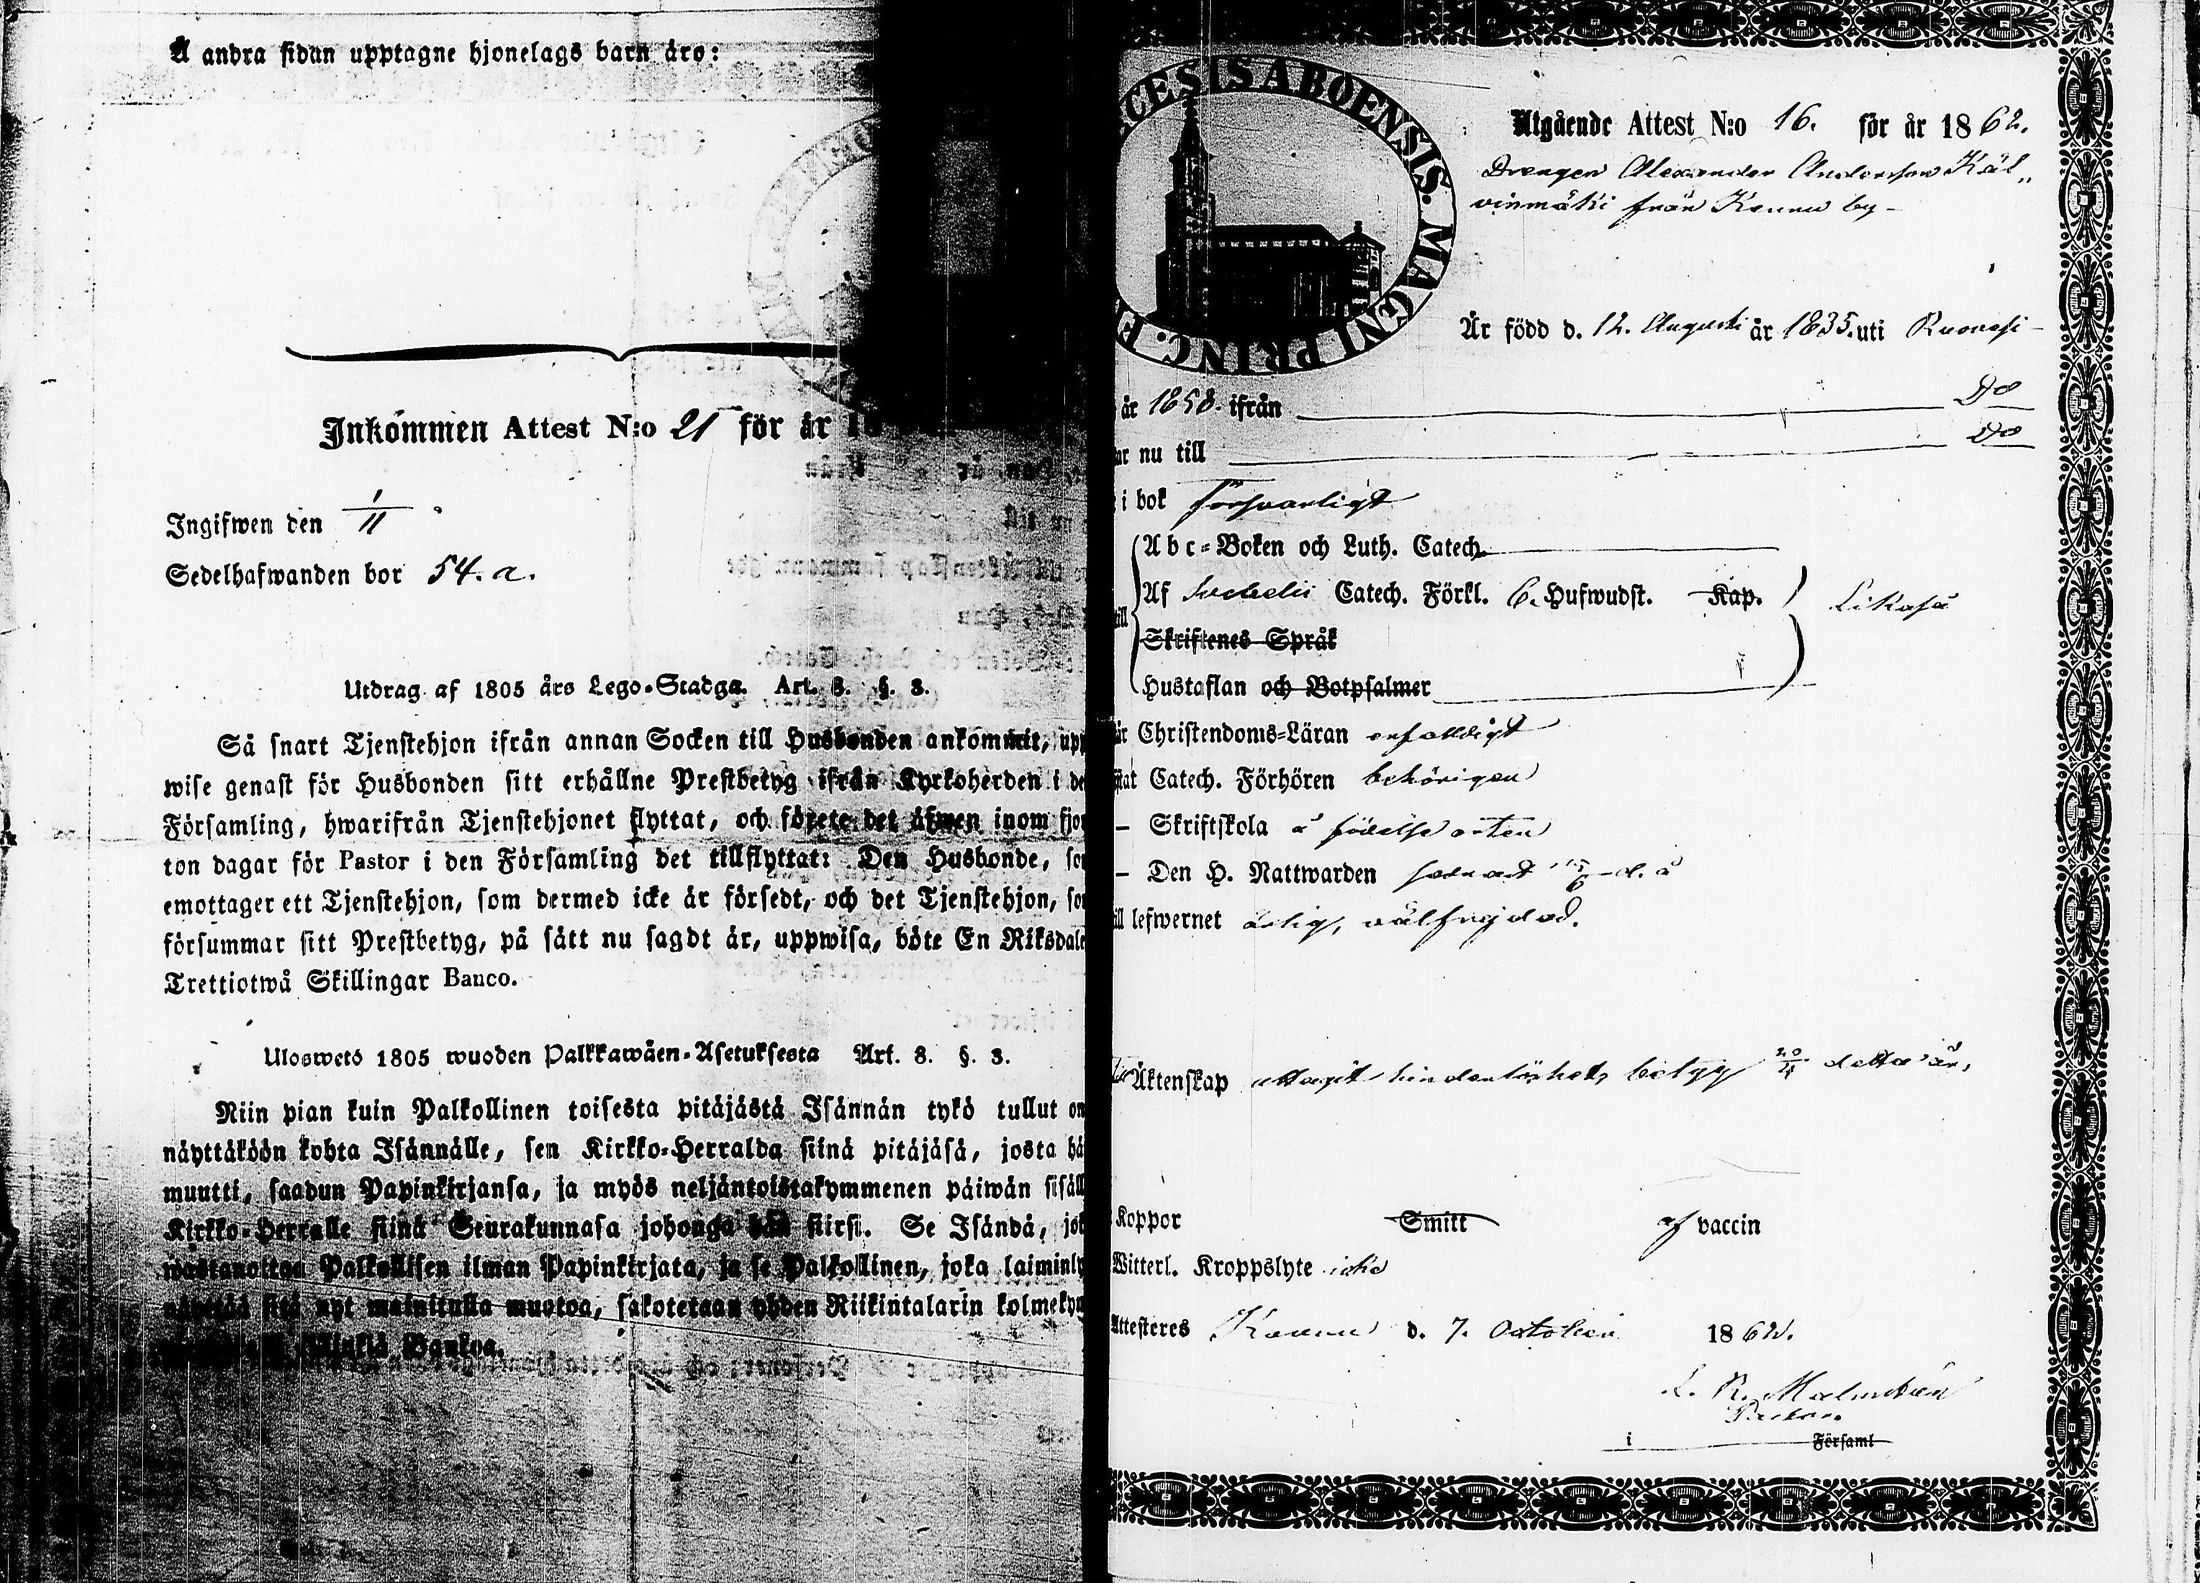 Å andra sidan upptagne hjonelags barn äro:
Inkommen Attest N:o 21 för år 18
Ingifwen den 1/11
Sedelhafwanden bor 54. a.
Utdrag af 1805 års Lego-Stadga. Art. 8. §. 3.
Så snart Tjenstehjon ifrån annan Socken till Husbonden ankommit, upp
wise genast för Husbonden sitt erhållne Prestbetyg ifrån Kyrkoherden i de
Församling, hwarifrån Tjenstehjonet flyttat, och förete det äfwen inom fjor
ton dagar för Pastor i den Församling det tillflyttat: Den Husbonde, so
emottager ett Tjenstehjon, som dermed icke är försedt, och det Tjenstehjon, so
försummar sitt Prestbetyg, på sätt nu sagdt är, uppwisa, böte En Riksdale
Trettiotwå Skillingar Banco.
Uloswetö 1805 wuoden Palkkawäen-Asetuksesta Art. 8. §. 3.
Niin pian kuin Palkollinen toisesta pitäjästä Isännän tykö tullut on
näyttäköön kohta Isännälle, sen Kirkko-Herralda siinä pitäjäsä, josta hä
muutti, saadun Papinkirjansa, ja myös neljäntoistakymmenen päiwän sisäll
Kirkko-Herralle siinä Seurakunnasa johonga hän siirsi. Se Isändä, jok
wastanottaa Palkollisen ilman Papinkirjata, ja se Palkollinen, joka laiminly
näyttää sitä nyt mainitulla muotoa, sakotetaan yhden Riikintalarin kolmeky
Bankoa.
CESIS ABOENSIS. MAGNI PRINC. F
Utgående Attest N:o 16. för år 1862.
Drengen Alexander Andersson Käl„
vinmäki från Karunu by-
Är född d. 12. Augusti år 1835. uti Rumosi-
år 1858. ifrån Do
ar nu till Do
i bok försvarligt
Abc-Boken och Luth. Catech.
Af Svebelii Catech. Förkl. 6. Hufwudst. Kap. Likaså
Skriftenes Språk
Hustaflan och Botpsalmer
är Christendoms-Läran enfaldigt
stat Catech. Förhören behörigen
– Skriftskola å födelse orten
– Den H. Nattwarden senast d. å
ill lefwernet ärlig, välfrejdad.
Äktenskap uttagit hinderlöshets betyg 20/4 detta år,
Koppor Smitt af vaccin
Witterl. Kroppslyte icke
Attesteres d. 7. October 1862.
Pastor.
i Församl